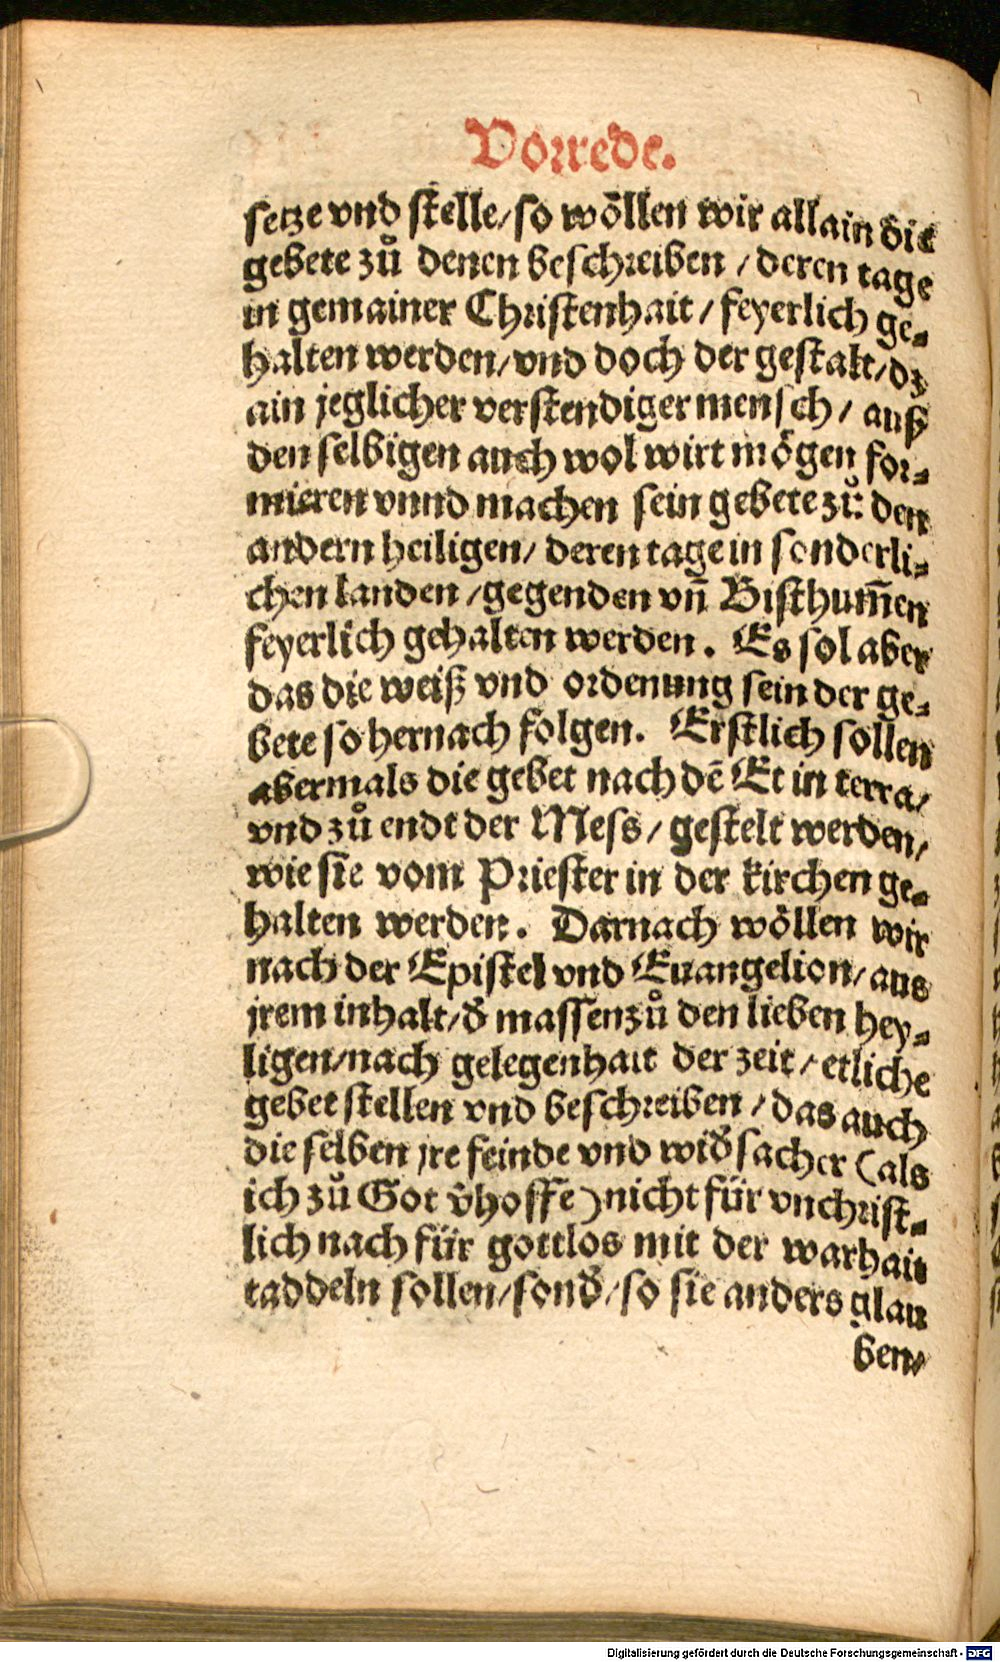 Vorrede.
setze vnd stelle/ so wöllen wir allain die
gebete zů denen beschreiben / deren tage
in gemainer Christenhait / feyerlich ge-
halten werden/ vnd doch der gestalt/ dz
ain jeglicher verstendiger mensch / auß
den selbigen auch wol wirt mögen for-
mieren vnnd machen sein gebete zů den
andern heiligen/ deren tage in sonderli-
chen landen / gegenden vñ Bisthum̃en
feyerlich gehalten werden. Es sol aber
das die weiß vnd ordenung sein der ge-
bete so hernach folgen. Erstlich sollen
abermals die gebet nach dē Et in terra/
vnd zů endt der Mess / gestelt werden/
wie sie vom Priester in der kirchen ge-
halten werden. Darnach wöllen wir
nach der Epistel vnd Euangelion/ aus
jrem inhalt/ d̕ massen zů den lieben hey-
ligen/ nach gelegenhait der zeit / etliche
gebet stellen vnd beschreiben / das auch
die selben jre feinde vnd wid̕sacher (als
ich zů Got v̕hoffe) nicht für vnchrist-
lich nach für gottlos mit der warhait
taddeln sollen/ sond̕/ so sie anders glau
ben/
Digitalisierung gefördert durch die Deutsche Forschungsgemeinschaft - DFG